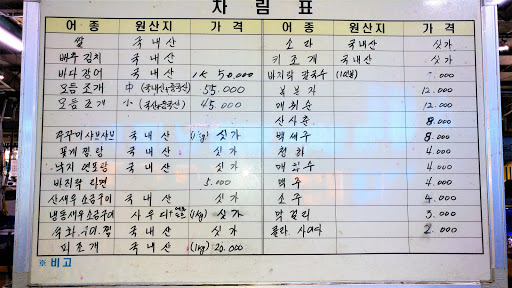 차 림 표
어 종 원산지 가 격 어 종 원산지 가 격
쌀 국내산 소 라 국내산 싯가
배추 김치 국내산 키 조 개 국내산 싯가
바다 광어 국내산 1K 50.000 바지락 칼국수 (1인분)
모듬 조개 中 55.000 복분자 12.000
모듬 조개 小 45.000 매취순 12.000
산사춘 8.000
쭈꾸미 샤브샤브 국내산 (1kg) 싯가 백세주 8.000
꽃게 찜탕 국내산 싯가 청하 4.000
낙지 연포탕 국내산 싯가 4.000
바지락 라면 5.000 맥주 4.000
산새우 소금구이 국내산 싯가 소주 4.000
냉동새우 소금구이 사우디 (1kg) 싯가 막걸리 3.000
국내산 싯가 콜라 사이다 2.000
피조개 국내산 (1kg) 20.000
※ 비고